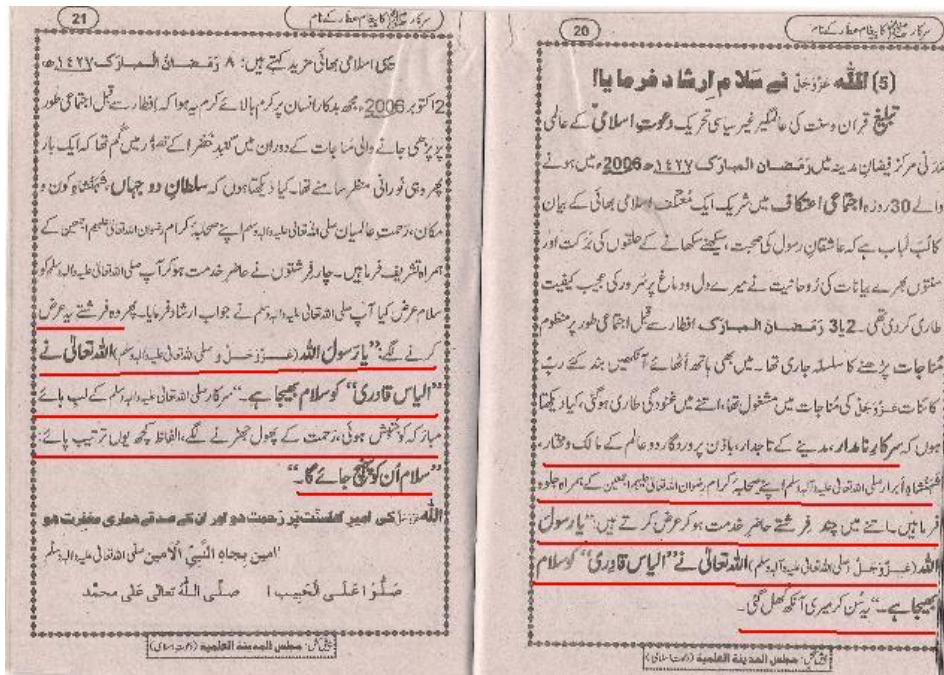 20
سرکار ﷺ کا پیغام عطار کے نام
(5) اللہ عَزَّوَجَلَّ نے سَلام اِرشاد فرمایا!
تبلیغِ قرآن و سنت کی عالمگیر غیر سیاسی تحریک دعوتِ اسلامی کے عالمی
مَدَنی مرکز فیضانِ مدینہ میں رَمَضانُ المبارَک ١٤٢٧ھ 2006ء میں ہونے
والے 30 روزہ اجتماعی اعتکاف میں شریک ایک مُعتکِف اسلامی بھائی کے بیان
کا لُبِّ لُباب ہے کہ عاشقانِ رسول کی صحبت، سیکھنے سکھانے کے حلقوں کی بَرَکت اور
سنتوں بھرے بیانات کی رُوحانیت نے میرے دل و دماغ پر سُرور کی عجیب کیفیت
طاری کر دی تھی۔ 2 یا 3 رَمَضانُ المبارَک افطار سے قبل اجتماعی طور پر منظوم
مُناجات پڑھنے کا سلسلہ جاری تھا۔ میں بھی ہاتھ اُٹھائے آنکھیں بند کئے ربِّ
کائنات عَزَّوَجَلَّ کی مُناجات میں مشغول تھا، اتنے میں غنودگی طاری ہوگئی، کیا دیکھتا
ہوں کہ سرکارِ نامدار، مدینے کے تاجدار، باذنِ پروردگار دو عالم کے مالک و مختار،
شَہَنشاہِ اَبرار صلی اللہ تعالیٰ علیہ واٰلہ وسلم اپنے صحابۂ کرام رضوان اللہ تعالیٰ علیہم اجمعین کے ہمراہ جلوہ
فرما ہیں۔ اتنے میں چند فِرِشتے حاضِرِ خدمت ہو کر عرض کرتے ہیں: ”یا رسولَ
اللہ (عَزَّوَجَلَّ و صلی اللہ تعالیٰ علیہ واٰلہ وسلم) اللہ تعالٰی نے ”الیاس قادری“ کو سلام
بھیجا ہے۔“ یہ سُن کر میری آنکھ کھل گئی۔
پیش کش: مجلس المدینۃ العلمیۃ (دعوتِ اسلامی)
21
سرکار ﷺ کا پیغام عطار کے نام
یہی اسلامی بھائی مزید کہتے ہیں: ٨ رَمَضانُ المبارَک ١٤٢٧ھ
2 اکتوبر 2006ء مجھ بدکار انسان پر کرم بالائے کرم یہ ہوا کہ افطار سے قبل اجتماعی طور
پر پڑھی جانے والی مُناجات کے دوران میں گنبدِ خَضرا کے تصوُّر میں گُم تھا کہ ایک بار
پھر وہی نورانی منظر سامنے تھا۔ کیا دیکھتا ہوں کہ سلطانِ دو جہاں، شَہَنشاہِ کون و
مکان، رَحمتِ عالمیان صلی اللہ تعالیٰ علیہ واٰلہ وسلم اپنے صحابۂ کرام رضوان اللہ تعالیٰ علیہم اجمعین کے
ہمراہ تشریف فرما ہیں۔ چار فِرِشتوں نے حاضرِ خدمت ہو کر آپ صلی اللہ تعالیٰ علیہ واٰلہ وسلم کو
سلام عرض کیا آپ صلی اللہ تعالیٰ علیہ واٰلہ وسلم نے جواب ارشاد فرمایا۔ پھر وہ فرشتے یہ عرض
کرنے لگے: ”یا رَسولَ اللہ (عَزَّوَجَلَّ و صلی اللہ تعالیٰ علیہ واٰلہ وسلم) اللہ تعالٰی نے
”الیاس قادری“ کو سلام بھیجا ہے۔“ سرکار صلی اللہ تعالیٰ علیہ واٰلہ وسلم کے لب ہائے
مبارکہ کو جُنبِش ہوئی، رَحمت کے پھول جھڑنے لگے، الفاظ کچھ یوں ترتیب پائے:
”سلام اُن کو پہنچ جائے گا۔“
اللہ عَزَّوَجَلَّ کی امیرِ اَھلسنّت پر رَحمت ھو اور ان کے صدقے ھماری مغفرت ھو
امین بجاہِ النَّبِیِّ الْاَمین صلی اللہ تعالیٰ علیہ واٰلہ وسلم
صَلُّوا عَلَی الْحَبیب! صلَّی اللّٰہُ تعالٰی عَلٰی محمَّد
پیش کش: مجلس المدینۃ العلمیۃ (دعوتِ اسلامی)